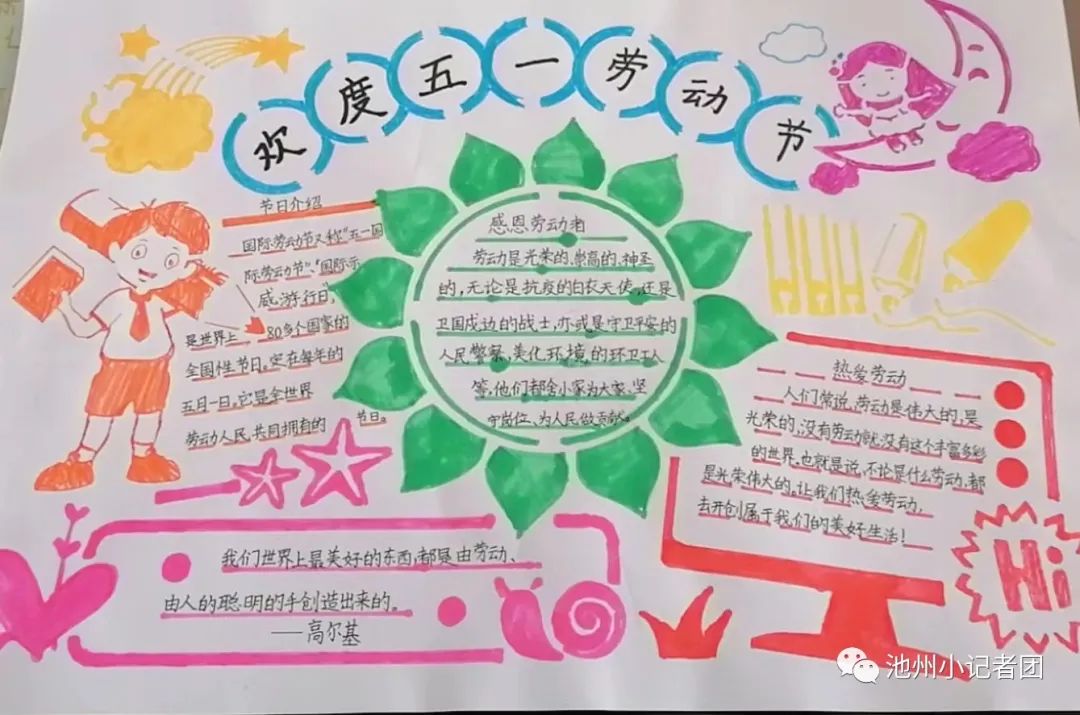 欢度五一劳动节
节日介绍
国际劳动节又称“五一国
际劳动节”、“国际示
威游行日”,
是世界上 80多个国家的
全国性节日。定在每年的
五月一日。它是全世界
劳动人民共同拥有的 节日。
感恩劳动者
劳动是光荣的、崇高的、神圣
的,无论是抗疫的白衣天使,还是
卫国戍边的战士,亦或是守卫平安的
人民警察,美化环境的环卫工人
等,他们都舍小家为大家,坚
守岗位、为人民做贡献。
热爱劳动
人们常说,劳动是伟大的,是
光荣的,没有劳动就没有这个丰富多彩
的世界。也就是说,不论是什么劳动,都
是光荣伟大的。让我们热爱劳动,
去开创属于我们的美好生活!
我们世界上最美好的东西,都是由劳动、
由人的聪明的手创造出来的。
——高尔基
Hi
池州小记者团